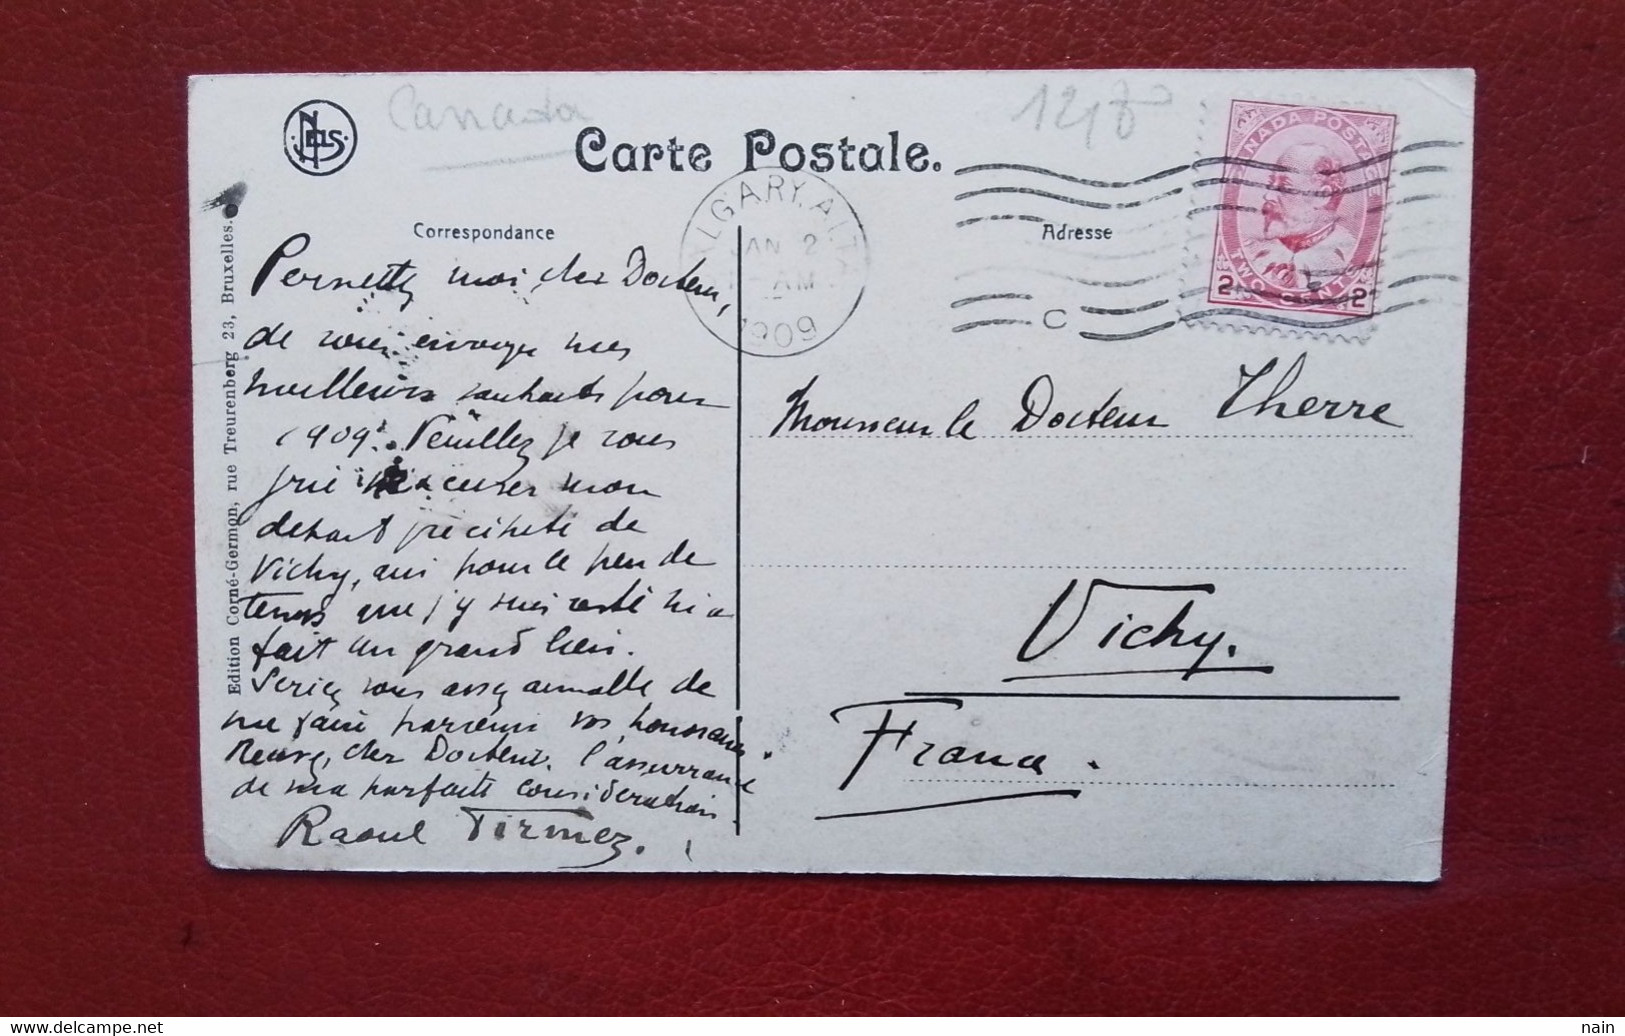 Canada
12,80
NELS
Carte Postale.
CALGARY. ALTA.
JAN 2
AM
1909
C
CANADA POSTAGE
2 TWO CENTS 2
Correspondance
Adresse
Edition Corné-Germon, rue Treurenberg 23, Bruxelles.
Permettez moi, cher Docteur,
de vous envoyer mes
meilleurs souhaits pour
1909. Veuillez je vous
prie excuser mon
départ précipité de
Vichy, qui pour le peu de
temps que j'y suis resté m'a
fait un grand bien.
Seriez vous assez aimable de
me faire parvenir vos honoraires.
Recevez, cher Docteur, l'assurance
de ma parfaite considération.
Raoul Tirmez.
Monsieur le Docteur Therre
Vichy.
France.
nain
delcampe.net